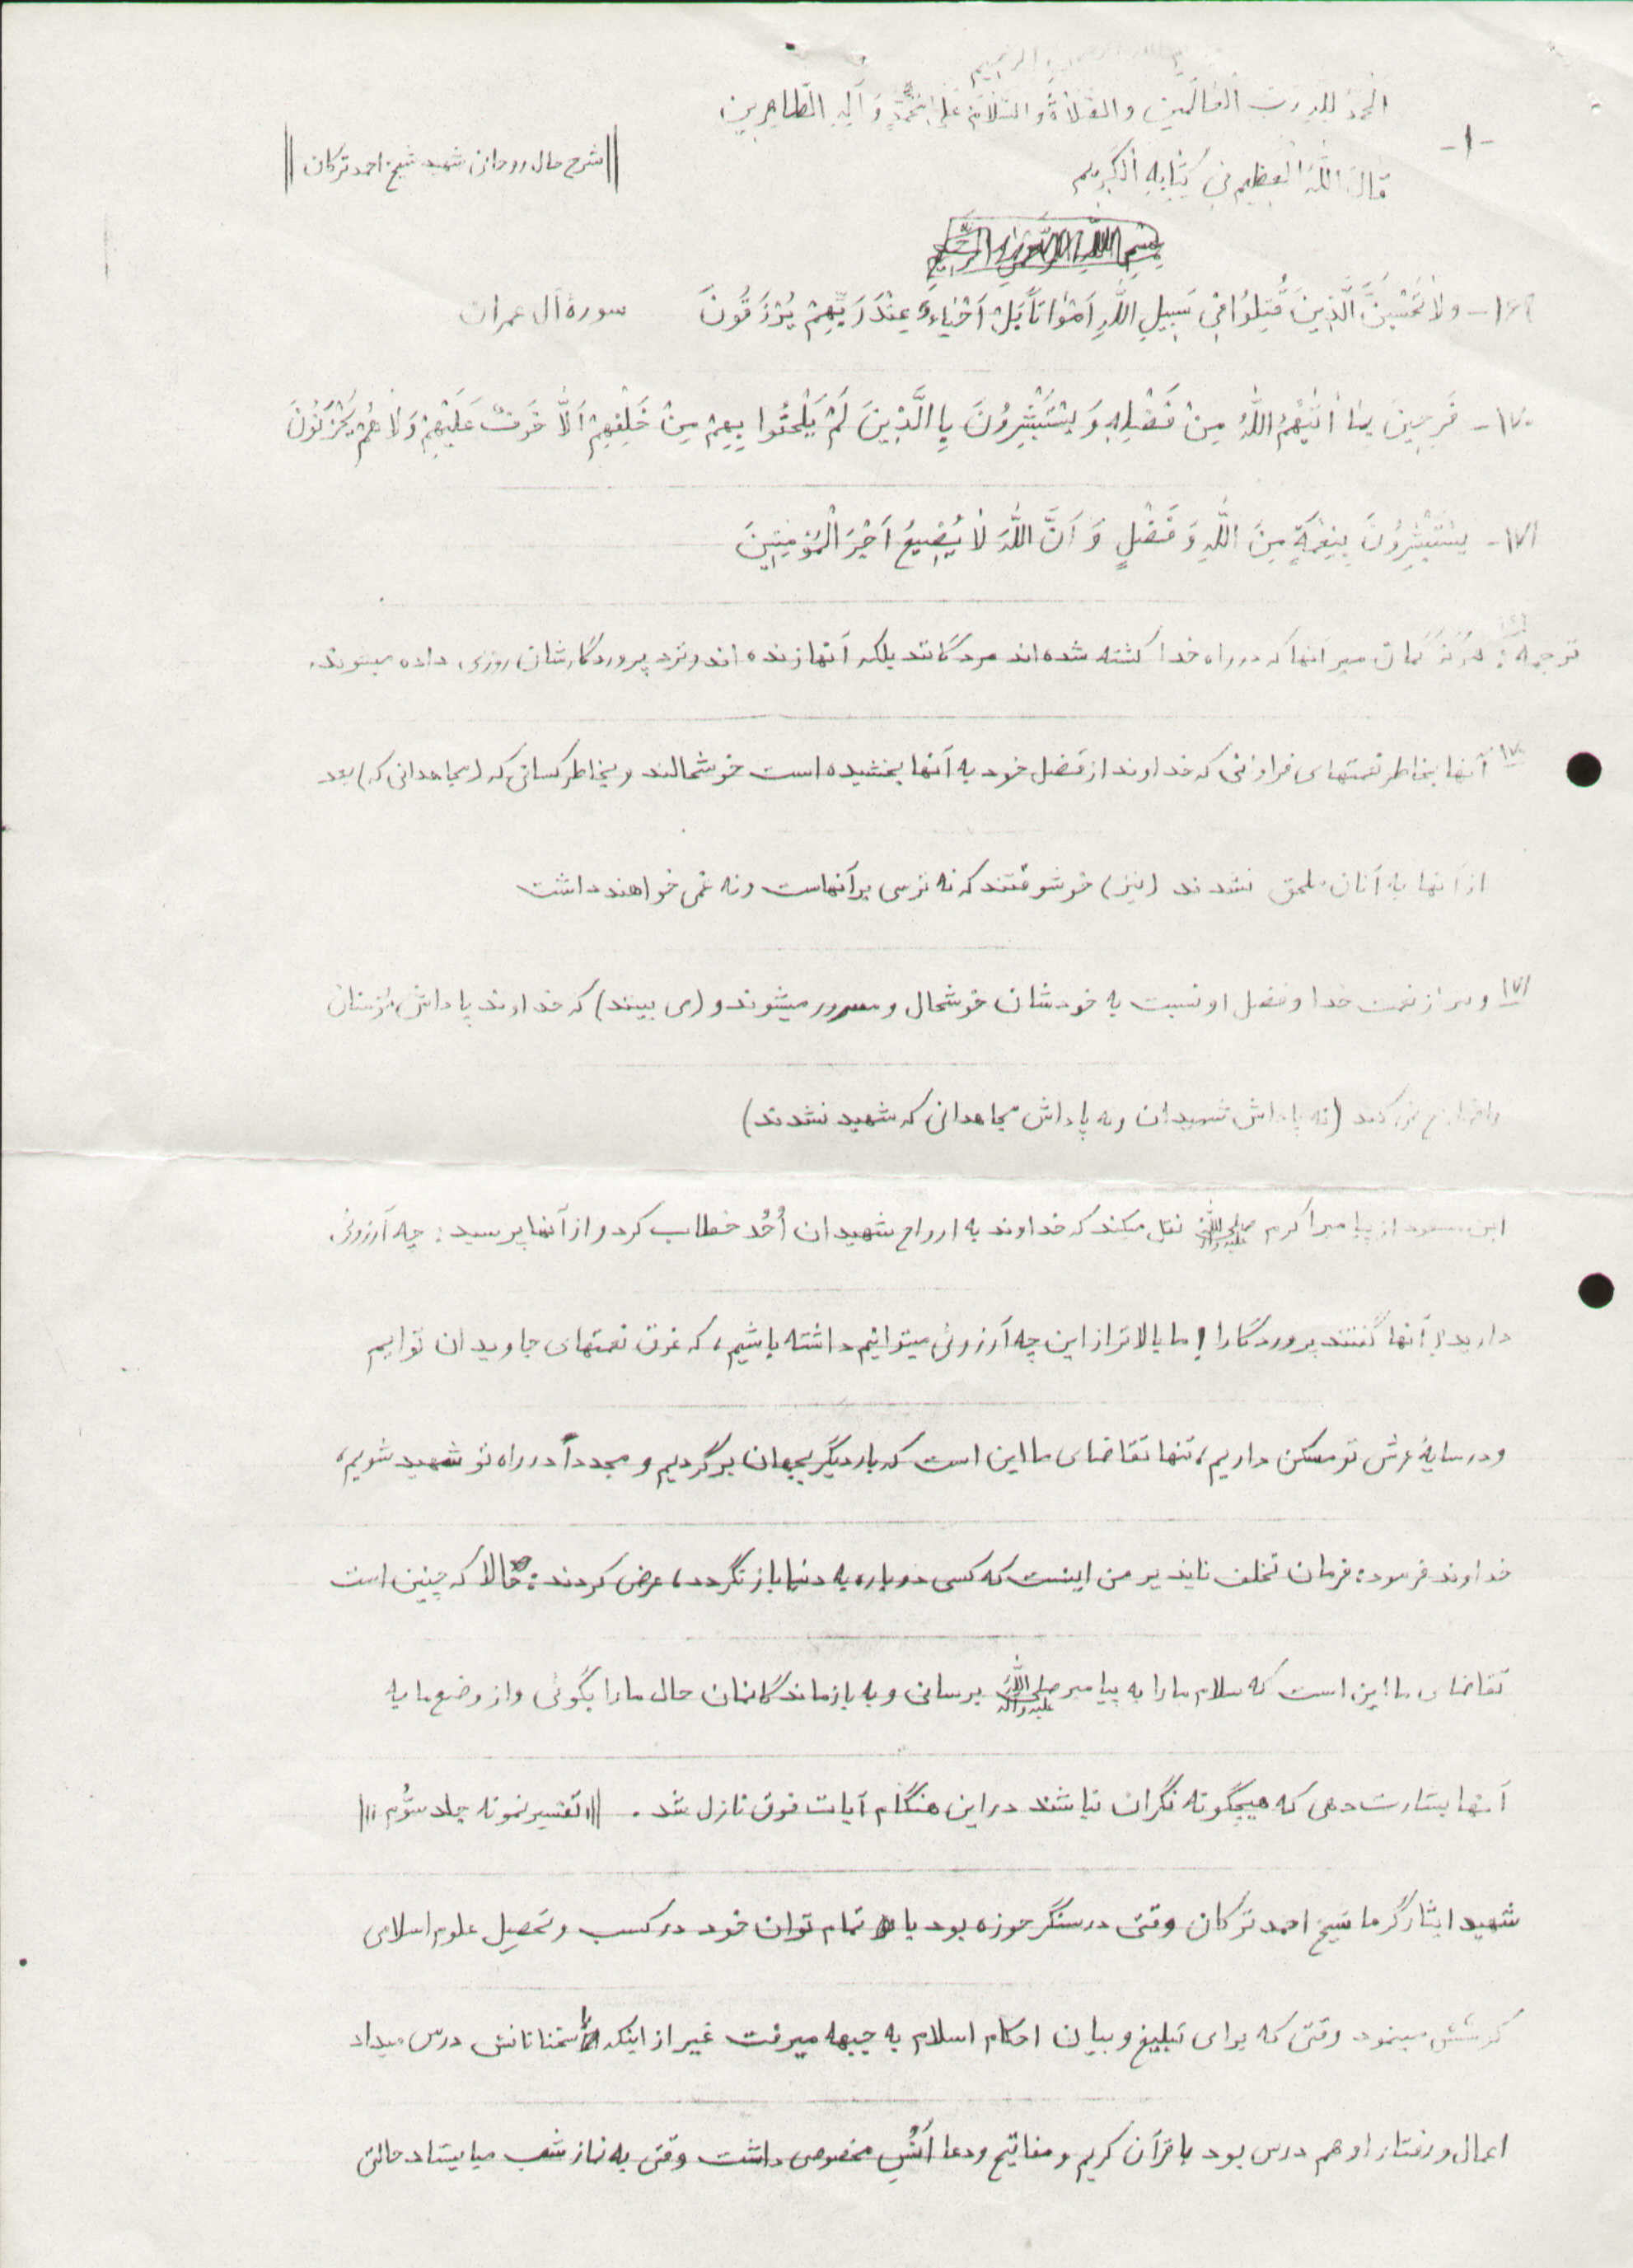 الرحیم
اَلحَمدُ لِلّهِ رَبِّ العالَمینَ وَ الصَّلاةُ وَ السَّلامُ عَلی مُحَمَّدٍ وَ آلِهِ الطّاهِرینِ
-۱-
شرح حال روحانی شهید شیخ احمد ترکان
قالَ اللّهُ العَظیمِ فی کِتابِهِ الکَریمِ
بِسمِ اللّهِ الرَّحمنِ الرَّحیمِ
۱۶۹- ولا تَحْسَبَنَّ الَّذینَ قُتِلُوا فی سَبیلِ اللّهِ اَمْواتاً بَلْ اَحْیاءٌ عِنْدَ رَبِّهِمْ یُرْزَقُونَ سورهٔ آل عمران
۱۷۰- فَرِحینَ بِما اتیٰهُمُ اللّهُ مِنْ فَضْلِهِ وَ یَسْتَبْشِرُونَ بِالَّذینَ لَمْ یَلْحَقُوا بِهِمْ مِنْ خَلْفِهِمْ اَلاّ خَوفٌ عَلَیْهِمْ وَلا هُمْ یَحْزَنُونَ
۱۷۱- یَسْتَبْشِرُونَ بِنِعْمَةٍ مِنَ اللّهِ وَ فَضْلٍ وَ اَنَّ اللّهَ لا یُضیعُ اَجْرَ الْمُؤمِنینَ
ترجمه: هرگز گمان مبر آنها که در راه خدا کشته شده‌اند مردگانند بلکه آنها زنده اند و نزد پروردگارشان روزی داده میشوند.
۱۷۰ آنها بخاطر نعمتهای فراوانی که خداوند از فضل خود به آنها بخشیده است خوشحالند و بخاطر کسانی که (مجاهدانی که) بعد
از آنها به آنان ملحق نشدند (نیز) خوشوقتند که نه ترسی بر آنهاست و نه غمی خواهند داشت
۱۷۱ و از نعمت خدا و فضل او نسبت به خودشان خوشحال و مسرور میشوند و (می بینند) که خداوند پاداش مؤمنان
را ضایع نمی کند (نه پاداش شهیدان و نه پاداش مجاهدانی که شهید نشدند)
ابن مسعود از پیامبر اکرم صلی الله علیه وآله نقل میکند که خداوند به ارواح شهیدان اُحُد خطاب کرد و از آنها پرسید: چه آرزوئی
دارید؟ آنها گفتند پروردگارا! ما بالاتر از این چه آرزوئی میتوانیم داشته باشیم، که غرق نعمتهای جاویدان توایم
و در سایهٔ عرش تو مسکن داریم، تنها تقاضای ما این است که بار دیگر بجهان برگردیم و مجدداً در راه تو شهید شویم،
خداوند فرمود: فرمان تخلف ناپذیر من اینست که کسی دوباره به دنیا باز نگردد، عرض کردند: حالا که چنین است
تقاضای ما این است که سلام ما را به پیامبر صلی الله علیه وآله برسانی و به بازماندگانمان حال ما را بگوئی و از وضع ما به
آنها بشارت دهی که هیچگونه نگران نباشند در این هنگام آیات فوق نازل شد. «تفسیر نمونه جلد سوُّم»
شهید ایثارگر ما شیخ احمد ترکان وقتی در سنگر حوزه بود با تمام توان خود در کسب و تحصیل علوم اسلامی
کوشش مینمود وقتی که برای تبلیغ و بیان احکام اسلام به جبهه میرفت غیر از اینکه با سخنانانش درس میداد
اعمال و رفتار او هم درس بود با قرآن کریم و مفاتیح و دعا اُنْسِ مخصوصی داشت وقتی به نماز شب میایستاد حالتی